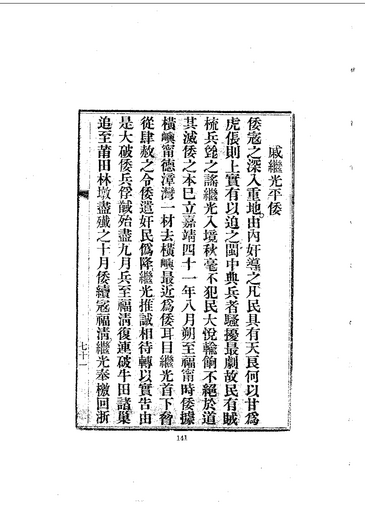 戚繼光平倭
倭寇之深入重地由內奸導之凡民具有天良何以甘爲
虎倀則上實有以迫之閩中典兵者騷擾最劇故民有賊
梳兵篦之謠繼光入境秋毫不犯民大悅輸餉不絕於道
其滅倭之本已立嘉靖四十一年八月朔至福甯時倭據
橫嶼甯德漳灣一材去橫嶼最近爲倭耳目繼光首下脅
從肆赦之令倭遣奸民僞降繼光推誠相待轉以實告由
是大破倭兵俘馘殆盡九月兵至福清復連破牛田諸巢
追至莆田林墩盡殲之十月倭續寇福清繼光奉檄回浙
七十一
141